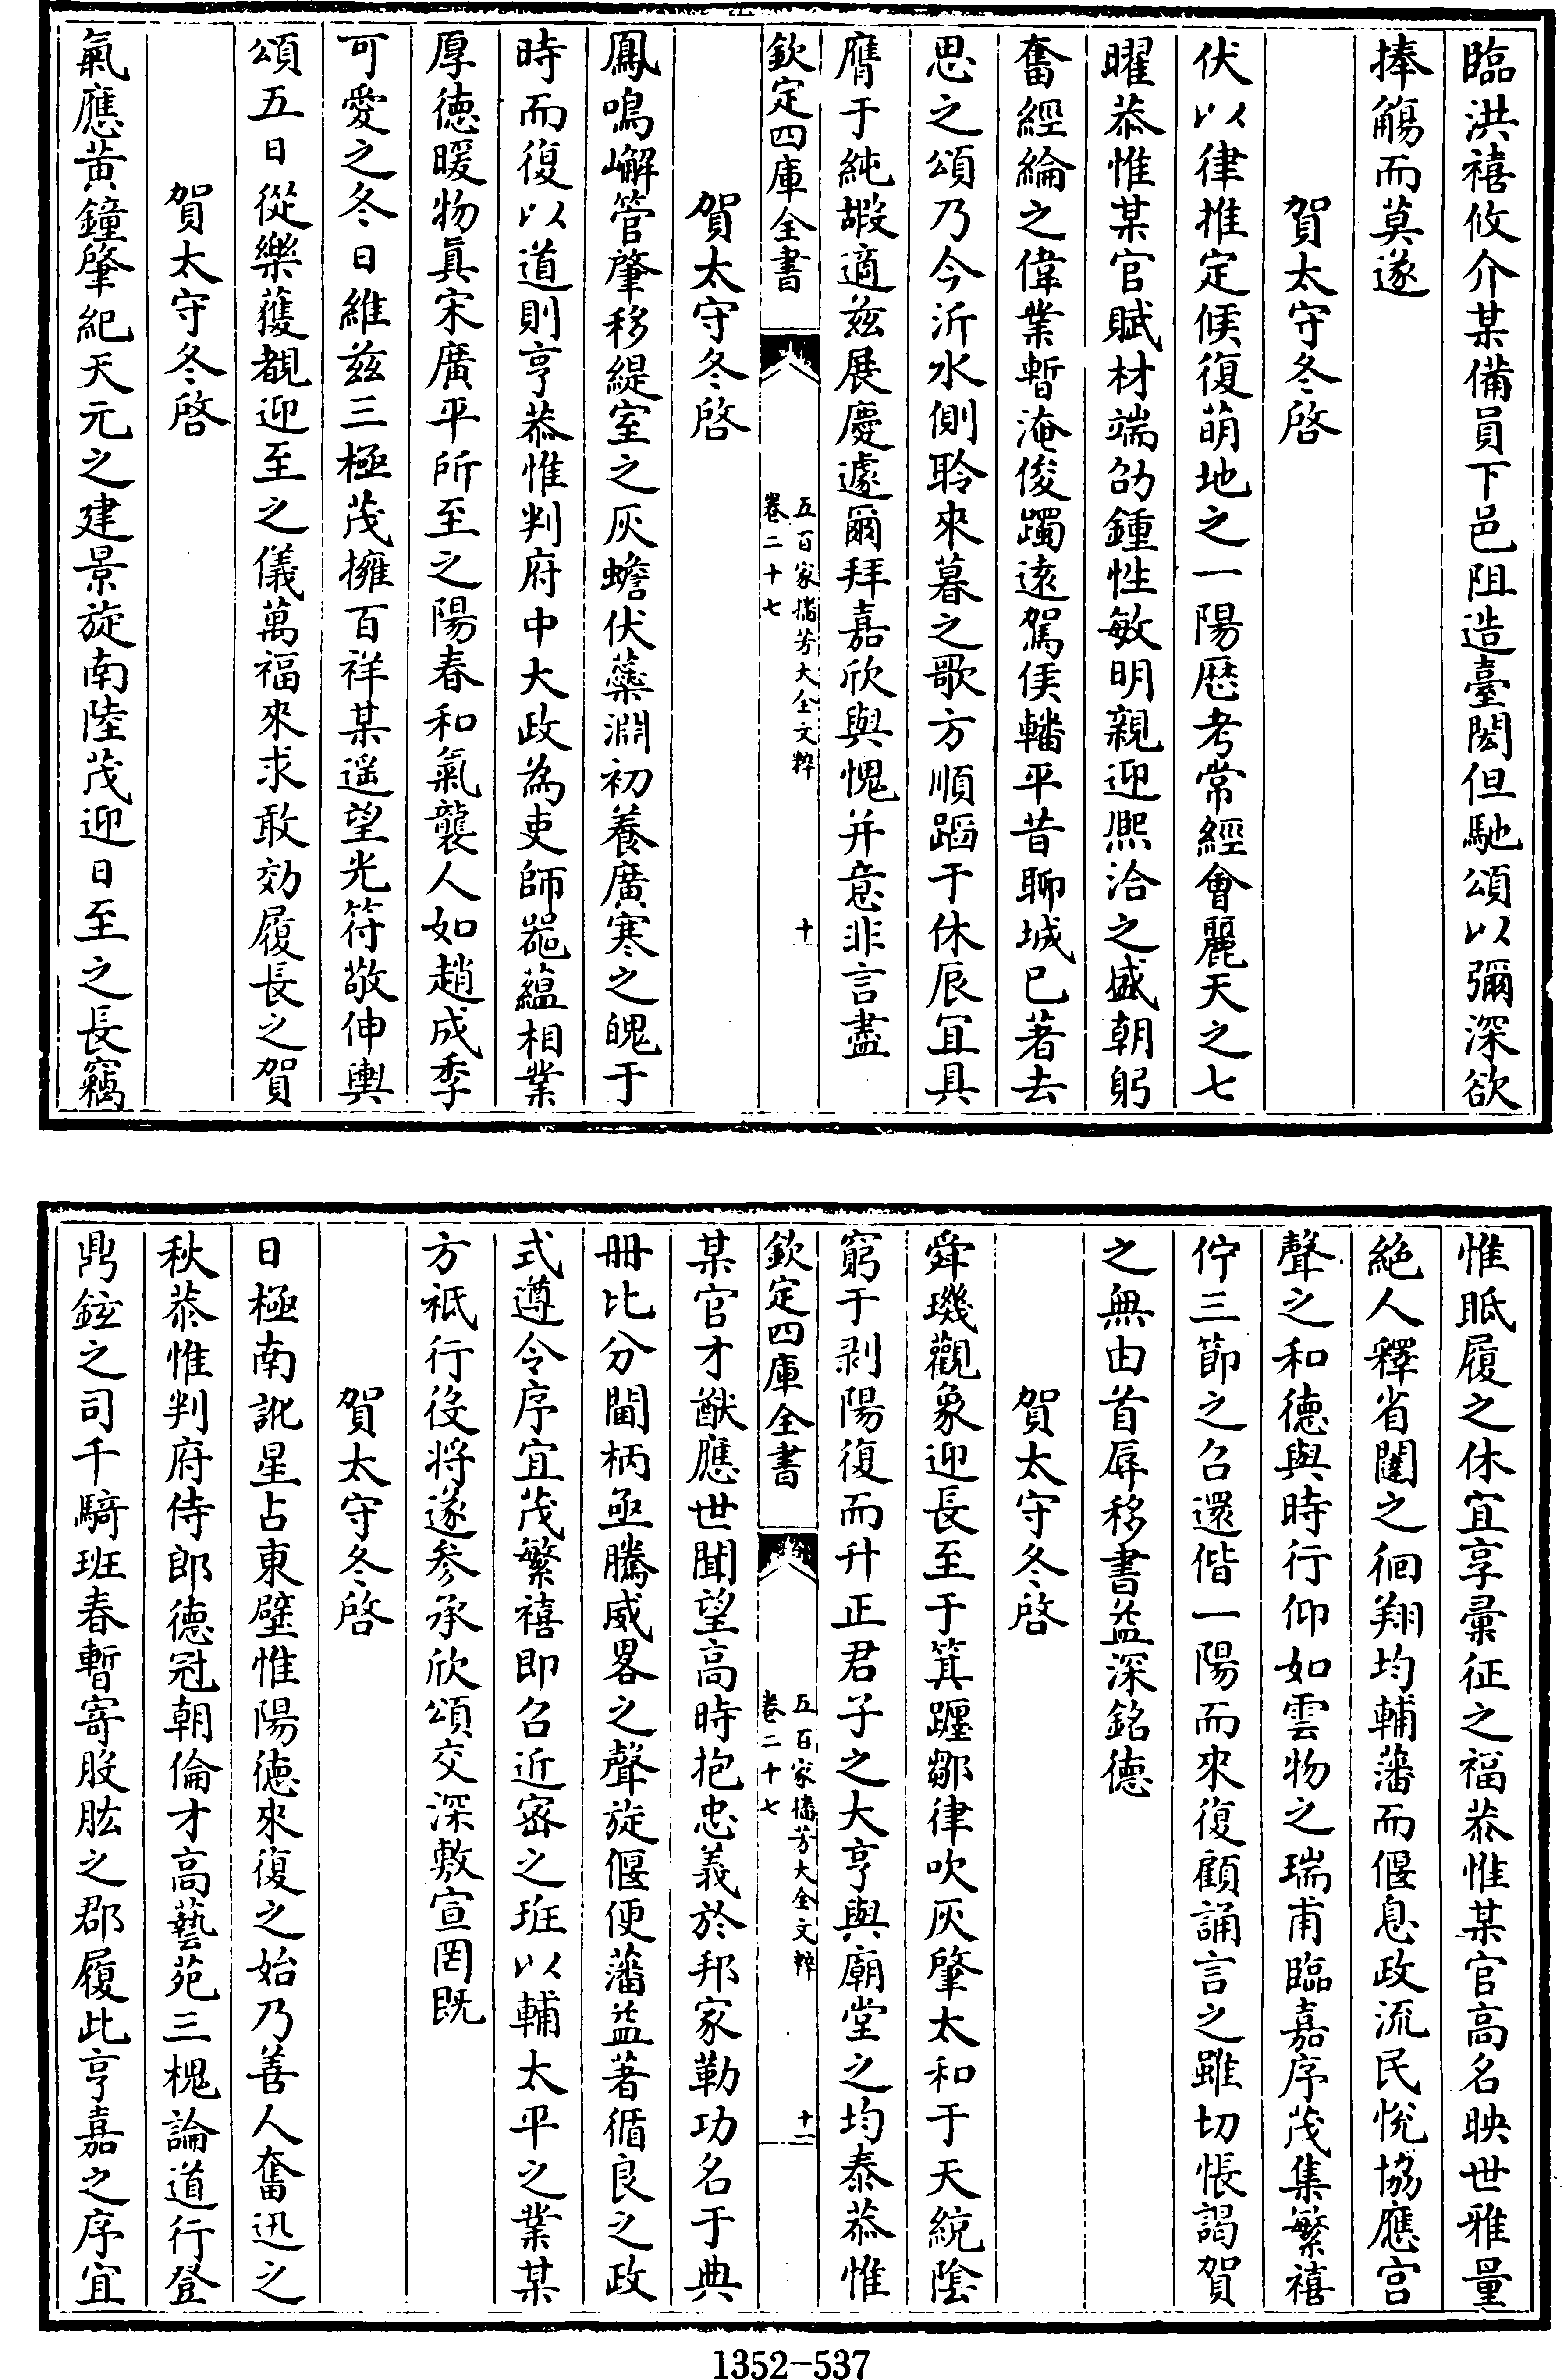 臨洪禧攸介某備員下邑阻造臺閎但馳頌以彌深欲
捧觴而莫遂
賀太守冬啓
伏以律推定候復萌地之一陽厯考常經會麗天之七
曜恭惟某官賦材端劭鍾性敏明親迎熈洽之盛朝躬
奮經綸之偉業暫淹俊躅逺駕侯轓平昔聊城已著去
思之頌乃今沂水側聆來暮之歌方順蹈于休辰宜具
膺于純嘏適兹展慶遽爾拜嘉欣與愧并意非言盡
欽定四庫全書
五百家播芳大全文粹
卷二十七
十
賀太守冬啓
鳳鳴嶰管肇移緹室之灰蟾伏蘂淵初養廣寒之魄于
時而復以道則亨恭惟判府中大政為吏師噐藴相業
厚徳暖物真宋廣平所至之陽春和氣襲人如趙成季
可愛之冬日維兹三極茂擁百祥某遥望光符敬伸輿
頌五日從樂獲覩迎至之儀萬福來求敢効履長之賀
賀太守冬啓
氣應黄鐘肇紀天元之建景旋南陸茂迎日至之長竊
惟眡履之休宜享彚征之福恭惟某官高名映世雅量
絶人釋省闥之徊翔均輔藩而偃息政流民悦協應宫
聲之和德與時行仰如雲物之瑞甫臨嘉序茂集繁禧
佇三節之召還偕一陽而來復顧誦言之雖切悵謁賀
之無由首辱移書益深銘德
賀太守冬啓
舜璣觀象迎長至于箕躔鄒律吹灰肇太和于天統陰
窮于剥陽復而升正君子之大亨與廟堂之均泰恭惟
欽定四庫全書
五百家播芳大全文粹
卷二十七
十一
某官才猷應世聞望高時抱忠義於邦家勒功名于典
冊比分閫柄亟騰威畧之聲旋偃便藩益著循良之政
式遵令序宜茂繁禧即召近宻之班以輔太平之業某
方祇行役将遂参承欣頌交深敷宣罔既
賀太守冬啓
日極南訛星占東壁惟陽徳來復之始乃善人奮迅之
秋恭惟判府侍郎德冠朝倫才高藝苑三槐論道行登
鼎鉉之司千騎班春暫寄股肱之郡履此亨嘉之序宜
1352-537